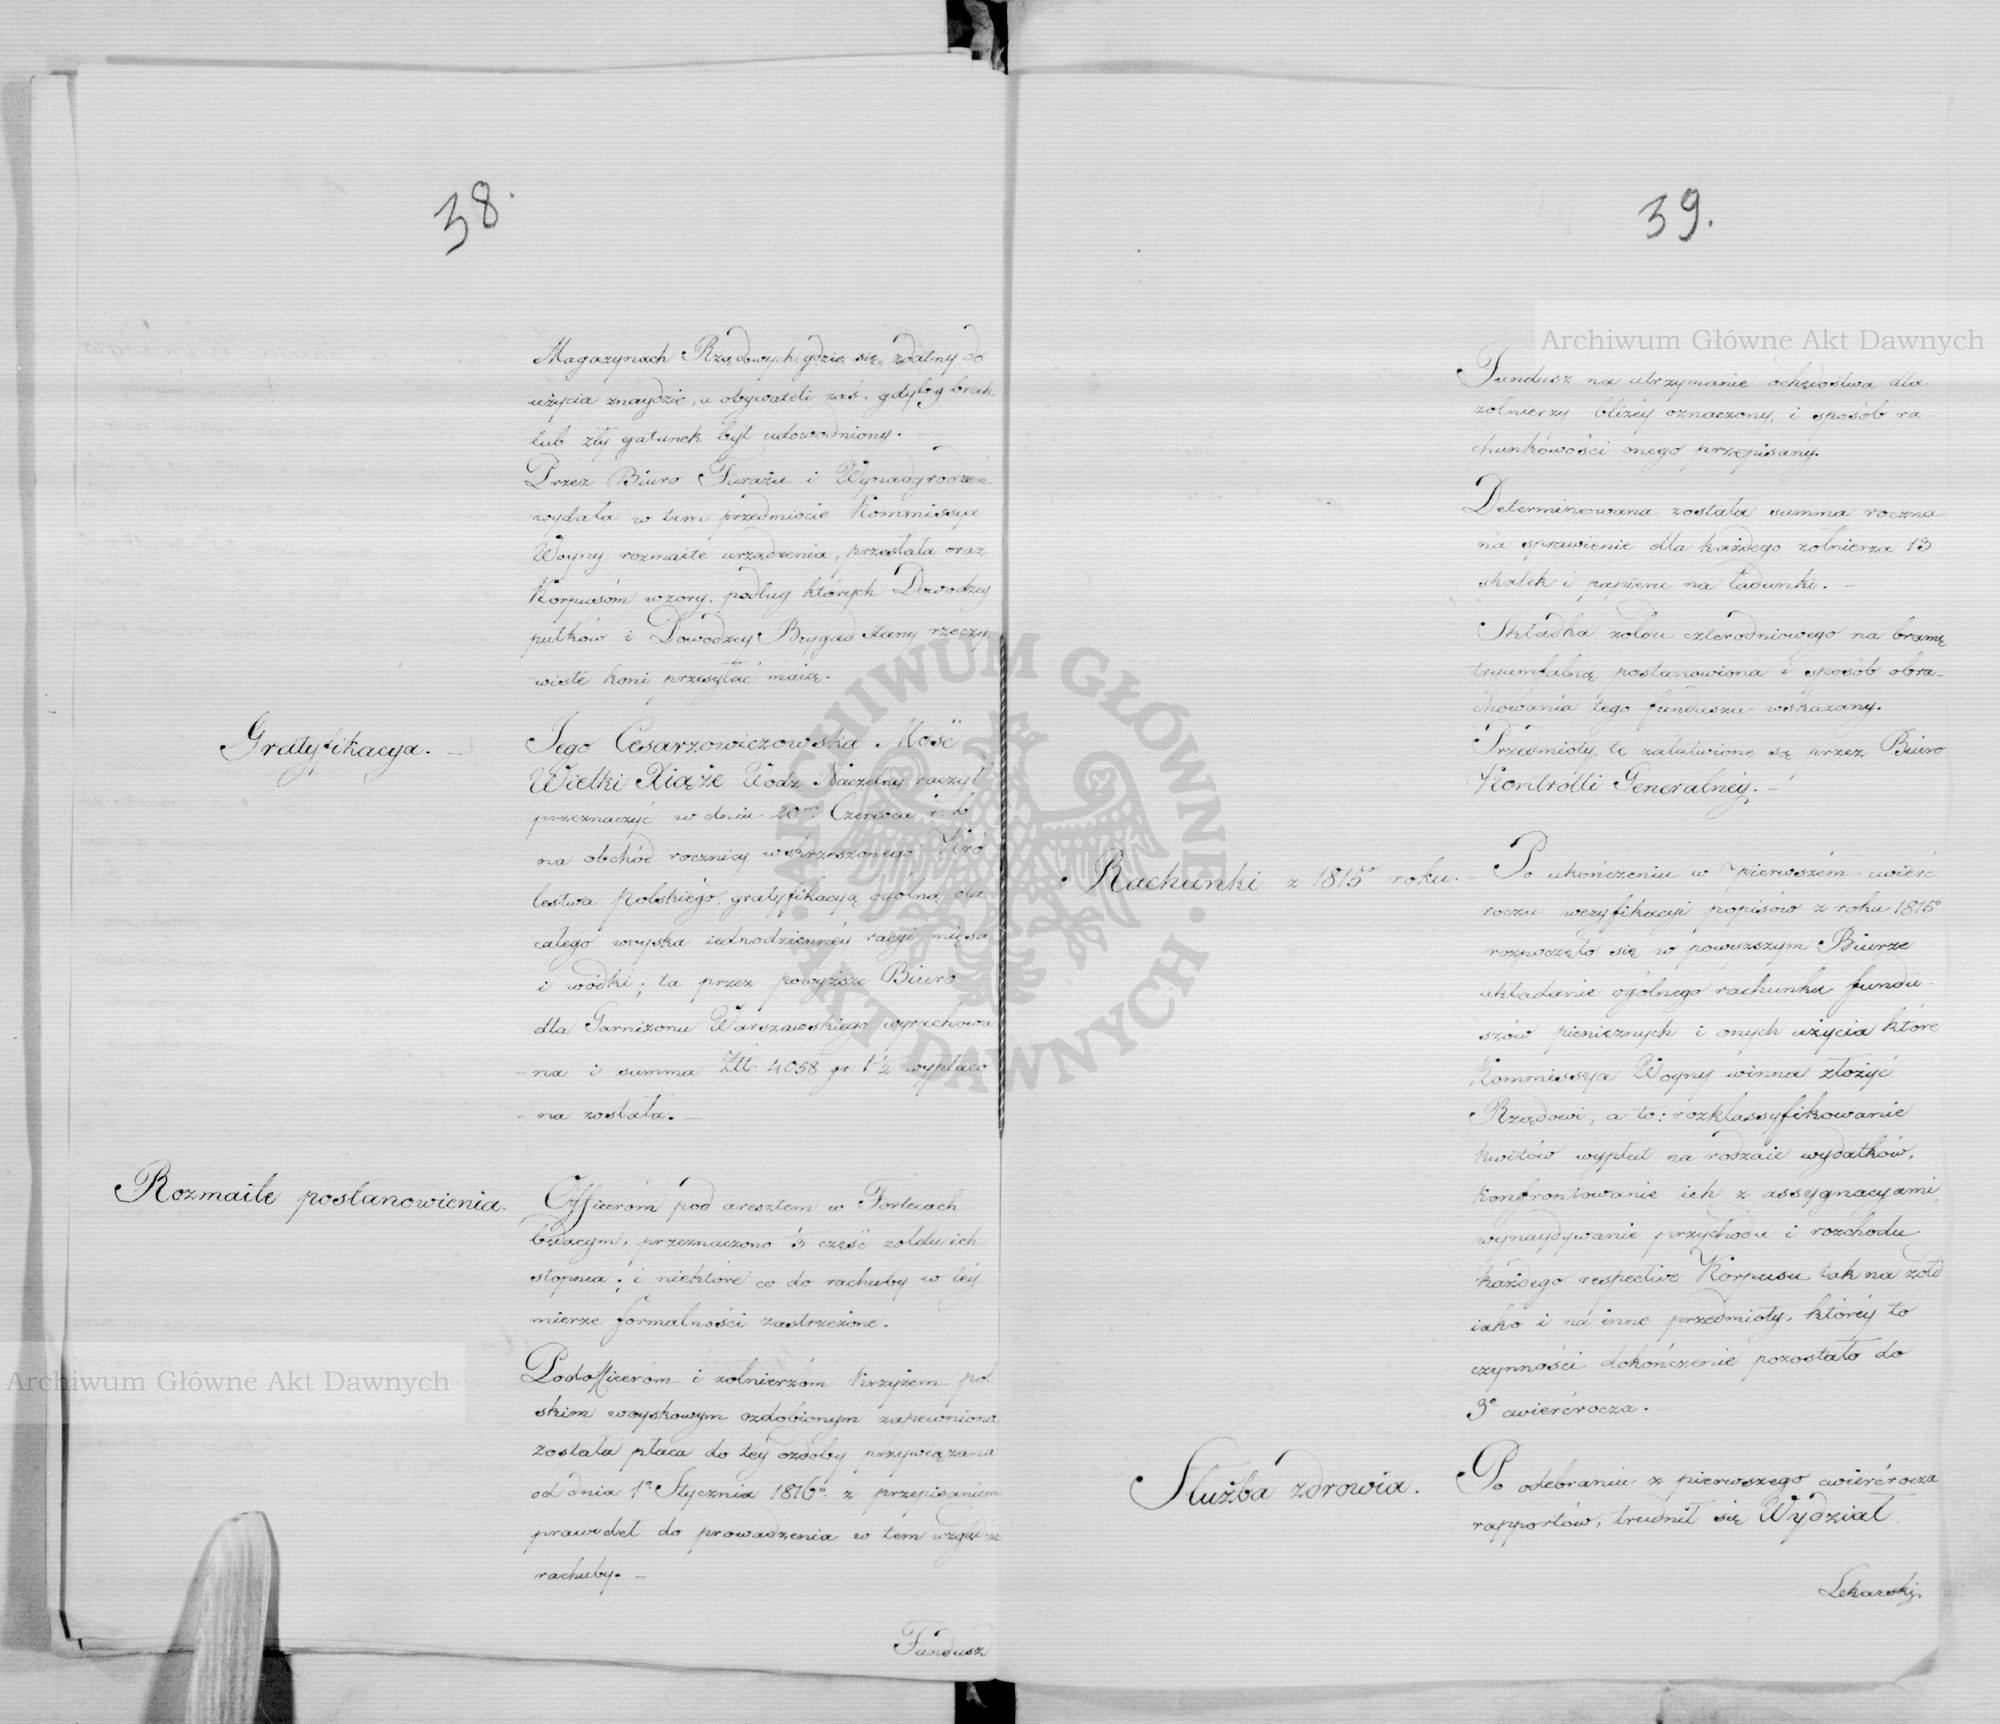 38.
Magazynach Rządowych, gdzie się zdatny do
użycia znaydzie, u obywateli zaś, gdyby brak
lub zły gatunek był udowodniony. —
Przez Biuro Furażu i Wynadgrodzeń
wydała w tem przedmiocie Kommissya
Woyny rozmaite urządzenia, przesłała oraz
Korpusóm wzory, podług których Dowódzcy
pułków i Dowódzcy Brygad stany rzeczy
wiste koni przesyłać maią.
Gratyfikacya. —
Jego Cesarzowiczowska Mość
Wielki Xiąże Wódz Naczelny raczył
przeznaczyć w dniu 20m Czerwca r. b.
na obchód rocznicy wskrzeszonego Kró
lestwa Polskiego, gratyfikacyą ogólną dla
całego woyska iednodziennéy racyi mięsa
i wódki; ta przez powyższe Biuro
dla Garnizonu Warszawskiego wyrachowa
na i summa Złł. 4058 gr. 1 1/2 wypłaco
na została. —
Rozmaite postanowienia.
Officeróm pod aresztem w Fortecach
będącym, przeznaczono 1/3 część żołdu ich
stopnia; i niektóre co do rachuby w téy
mierze formalności zastrzeżone.
Podofficeróm i żołnierzóm Krzyżem pol
skim woyskowym ozdobionym zapewniona
została płaca do téy ozdoby przywiązana
od dnia 1o Stycznia 1816o z przepisaniem
prawideł do prowadzenia w tem względzie
rachuby. —
Fundusz
39.
Fundusz na utrzymanie ochędostwa dla
żołnierzy bliżéy oznaczony, i sposób ra-
chunkówości onego przepisany.
Determinowana została summa roczna
na sprawienie dla każdego żołnierza 13
skałek i papieru na ładunki. —
Składka żołdu czterodniowego na bramę
tryumfalną postanowiona i sposób obra-
chowania tego funduszu wskazany.
Przedmioty te załatwione są przez Biuro
Kontrolli Generalnéy. —
Rachunki z 1815o roku. —
Po ukończeniu w pierwszém ćwierć
roczu weryfikacyi popisów z roku 1815o
rozpoczęło się w powyższym Biurze
układanie ogólnego rachunku fundu-
szów pieniężnych i onych użycia które
Kommissya Woyny winna złożyć
Rządowi, a to: rozklassyfikowanie
kwitów wypłat na rodzaie wydatków,
konfrontowanie ich z assygnacyami,
wynaydywanie przychodu i rozchodu
każdego respective Korpusu tak na żołd
iako i na inne przedmioty, któréy to
czynności dokończenie pozostało do
3o ćwierćrocza. —
Służba zdrowia.
Po odebraniu z pierwszego ćwierćrocza
rapportów, trudnił się Wydział
Lekarski,
Archiwum Główne Akt Dawnych
Archiwum Główne Akt Dawnych
ARCHIWUM GŁÓWNE · AKT DAWNYCH ·